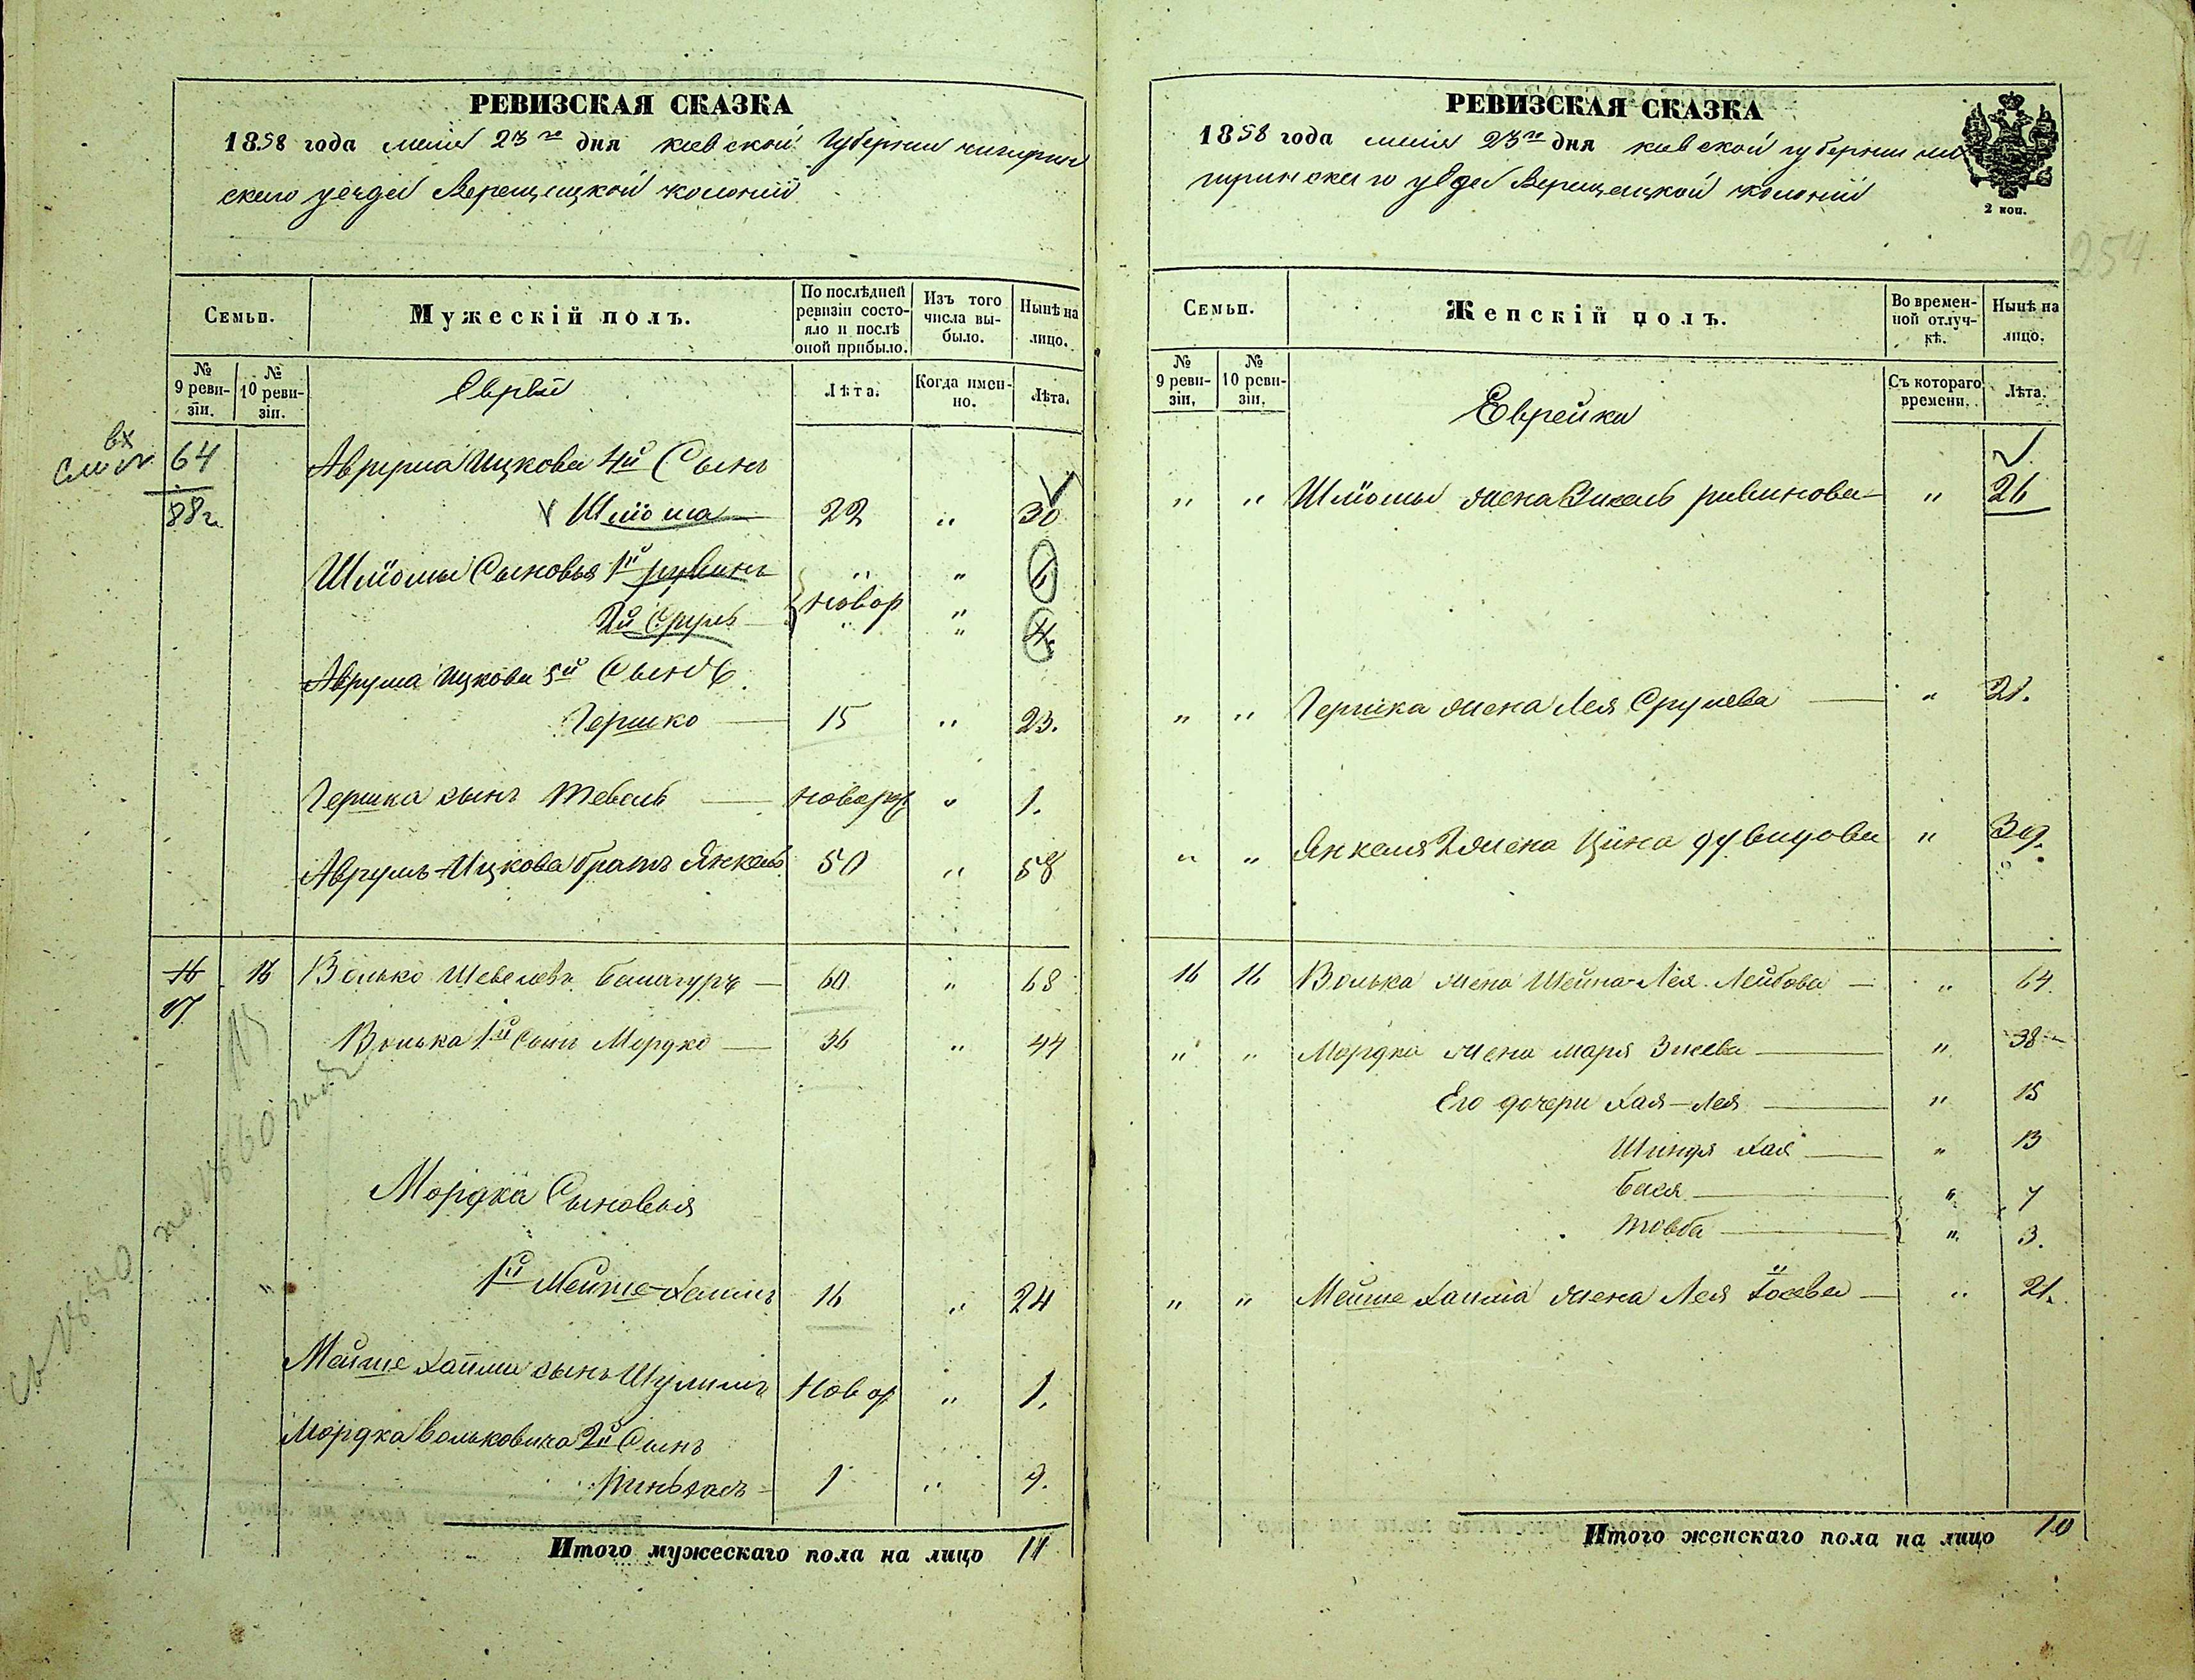 РЕВИЗСКАЯ СКАЗКА
1858 года маия 23го дня киевской губернии чигирин
скаго уезда Верещацкой колонии
Семьи.
Мужескій полъ.
По послѣдней ревизіи состо-
яло и послѣ
оной прибыло.
Изъ того
числа вы-
было.
Нынѣ на
лицо.
№
9 реви-
зіи.
№
10 реви-
зіи.
Евреи
Лѣта.
Когда имен-
но.
Лѣта.
64
Аврума Ицкова 4й Сынъ
88
Шлiома 22 " 30
Шлiомы Сыновья 1й рувинъ " " 6
2й Сруль новор " 4
Аврума Ицкова 5й Сынъ
Гершко 15 " 23.
Гершка сынъ Тевель новор " 1.
Аврумъ Ицкова братъ Янкель 50 " 58
16 16 Волько Шевелевъ 60 " 68
17
Волька 1й Сынъ Мордко 36 " 44
Мордка Сыновья
1й Мейше-Хаимъ 16 " 24
Мейше Хаима сынъ Шулимъ Новор " 1.
Мордка Вольковича 2й Сынъ
Пиньхасъ 1 " 9.
Итого мужескаго пола на лицо 11
РЕВИЗСКАЯ СКАЗКА
1858 года маия 23го дня киевской губернии чи
гиринскаго уезда Верещацкой колонии
2 коп.
254
Семьи.
Женскій полъ.
Во времен-
ной отлуч-
кѣ.
Нынѣ на
лицо.
№
9 реви-
зіи.
№
10 реви-
зіи.
Еврейки
Съ котораго
времени.
Лѣта.
" " Шлiомы жена рувинова " 26
" " Гершка жена Лея Срулева " 21.
" " Янкеля 2 жена Цiна Дувидова " 39.
16 16 Волька жена Шейна-Лея Лейбова " 64
" " Мордка жена маря " 38
Его дочери Хая-Лея " 15
Хая " 13
Бася " 7
Товба " 3.
" " Мейше Хаима жена Лея " 21.
Итого женскаго пола на лицо 10